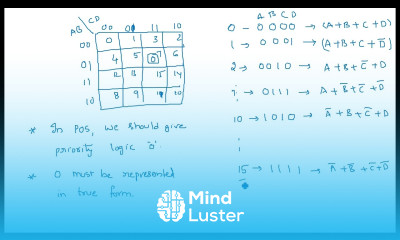 AB CD 00 01 11 10
00 0 1 3 2
01 4 5 0 7 6
11 12 13 15 14
10 8 9 10
* In POS, we should give
priority logic '0'.
* 0 must be represented
in true form
A B C D
0 - 0 0 0 0 → (A+B+C+D)
1 → 0 0 0 1 → (A+B+C+D̅)
2 → 0 0 1 0 → A+B+C̅+D
7 → 0 1 1 1 → A+B̅+C̅+D̅
10 → 1 0 1 0 → A̅+B+C̅+D
15 → 1 1 1 1 → A̅+B̅+C̅+D̅
Mind
Luster